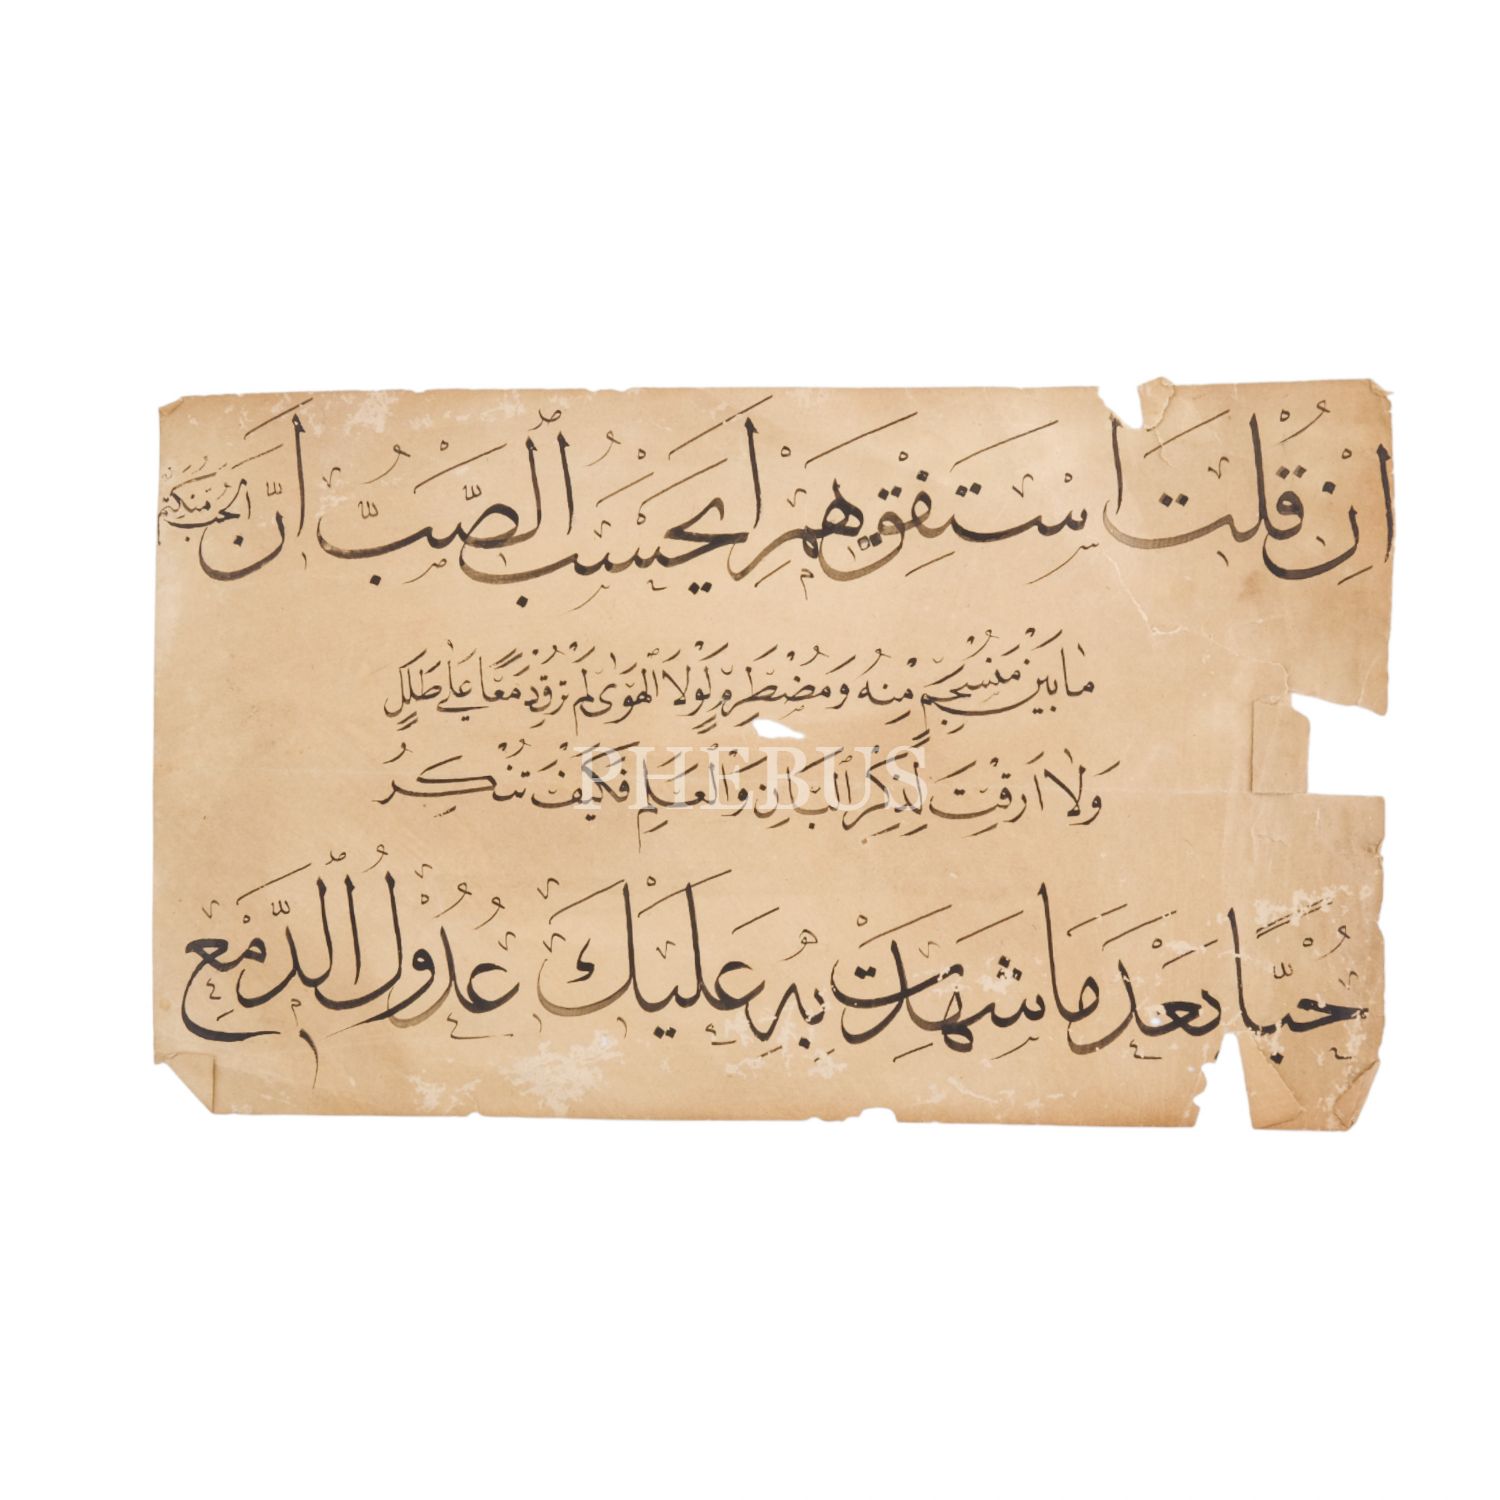 اِنْ قُلْتَ اسْتَفِقْ يَهِمِ اَيَحْسَبُ الصَّبُّ اَنَّ الْحُبَّ مُنْكَتِمٌ
مَا بَيْنَ مُنْسَجِمٍ مِنْهُ وَمُضْطَرِمٍ لَوْلَا الْهَوٰى لَمْ تُرِقْ دَمْعًا عَلٰى طَلَلٍ
وَلَا اَرِقْتَ لِذِكْرِ الْبَانِ وَالْعَلَمِ فَكَيْفَ تُنْكِرُ
حُبًّا بَعْدَ مَا شَهِدَتْ بِهِ عَلَيْكَ عُدُولُ الدَّمْعِ
PHEBUS